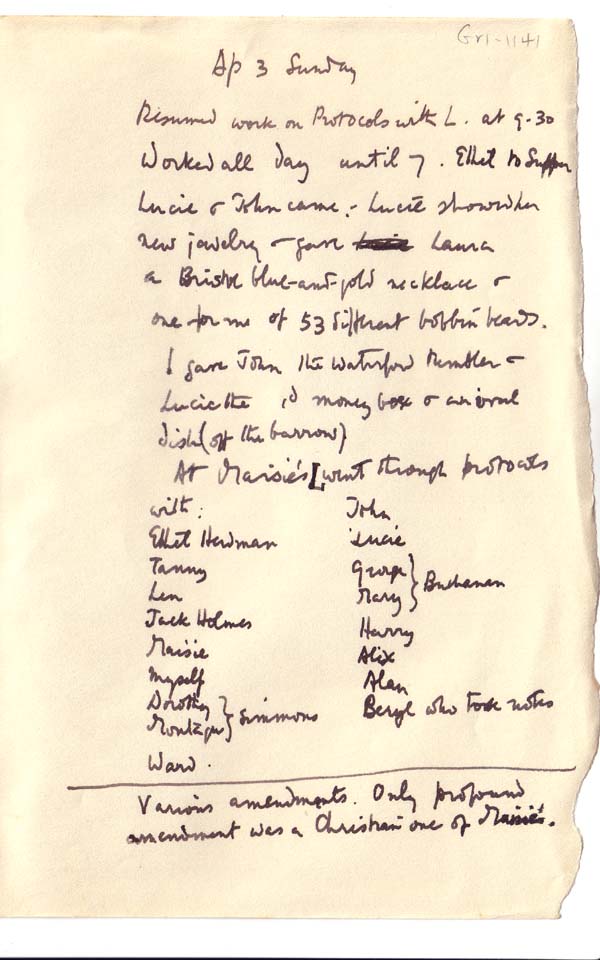 Gr1-1141
Ap 3 Sunday
Resumed work on Protocols with L. at 9-30
Worked all day until 7. Ethel to Supper
Lucie & John came. - Lucie showed her
new jewelry & gave Laura
a Bristol blue-and-gold necklace &
one for me of 53 different bobbin beads.
I gave John the Waterford tumbler &
Lucie the 1d money box & an oval
dish (off the barrow)
At Maisie's L went through protocols
with:
Ethel Herdman
Tanny
Len
Jack Holmes
Maisie
Myself
Dorothy } Simmons
Montague
Ward.
John
Lucie
George } Buchanan
Mary
Harry
Alix
Alan
Beryl who took notes
Various amendments. Only profound
amendment was a Christian one of Maisie's.